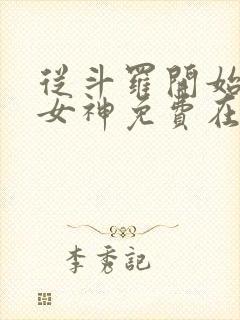 從斗羅開始
女神免費在
李秀記